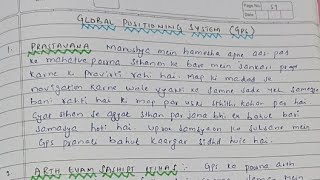 Page No. 51
GLOBAL POSITIONING SYSTEM (GPS)
1. PRASTAVANA Manushya mein hamesha apne aas pas
ke mahatva pourna sthanon ke bare mein jankari prapt
karne ki pravirti rahi hai. Map ki madad se
navigation karne wale vyakti ke samne sada yeh samasya
bani rahti hai ki map par uski sthiti kahan par hai
Gyat sthan se agyat sthan par jana bhi ek bahut bari
samasya hoti hai. Uprokt samasyaon ko suljhane mein
GPS pranali bahut kaargar sidhd huie hai.
2. ARTH EVAM SANSHIPT ITIHAS :- GPS ka pourna arth